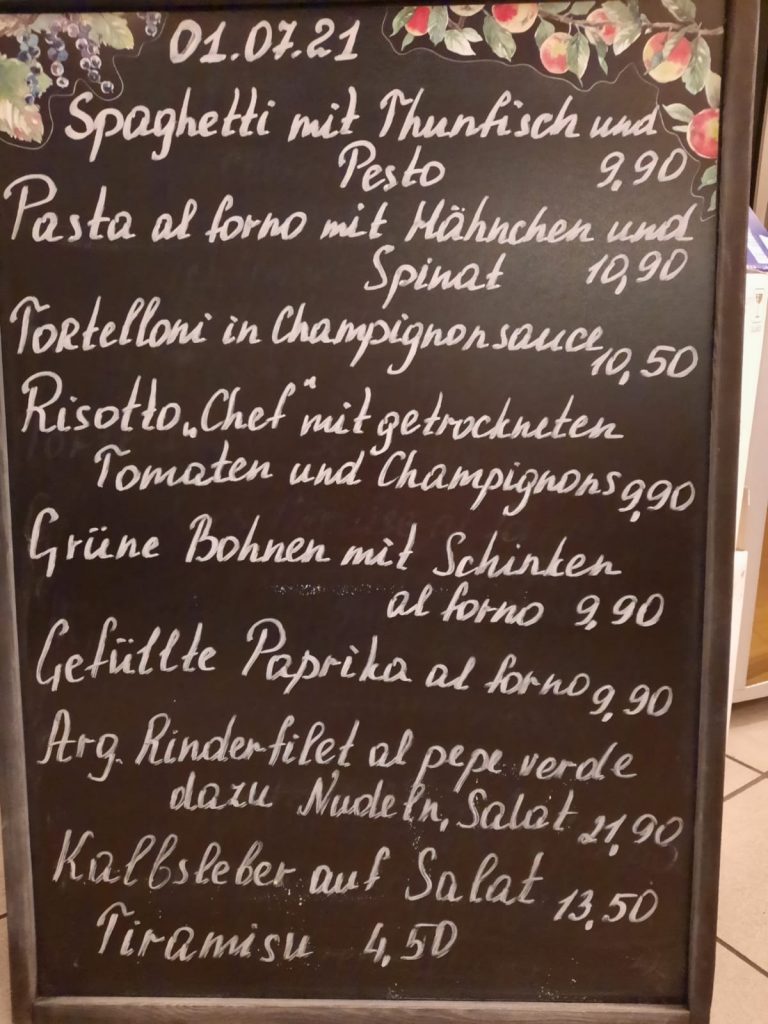 01.07.21
Spaghetti mit Thunfisch und
Pesto 9,90
Pasta al forno mit Hähnchen und
Spinat 10,90
Tortelloni in Champignonsauce
10,50
Risotto „Chef“ mit getrockneten
Tomaten und Champignons 9,90
Grüne Bohnen mit Schinken
al forno 9,90
Gefüllte Paprika al forno 9,90
Arg. Rinderfilet al pepe verde
dazu Nudeln, Salat 21,90
Kalbsleber auf Salat 13,50
Tiramisu 4,50